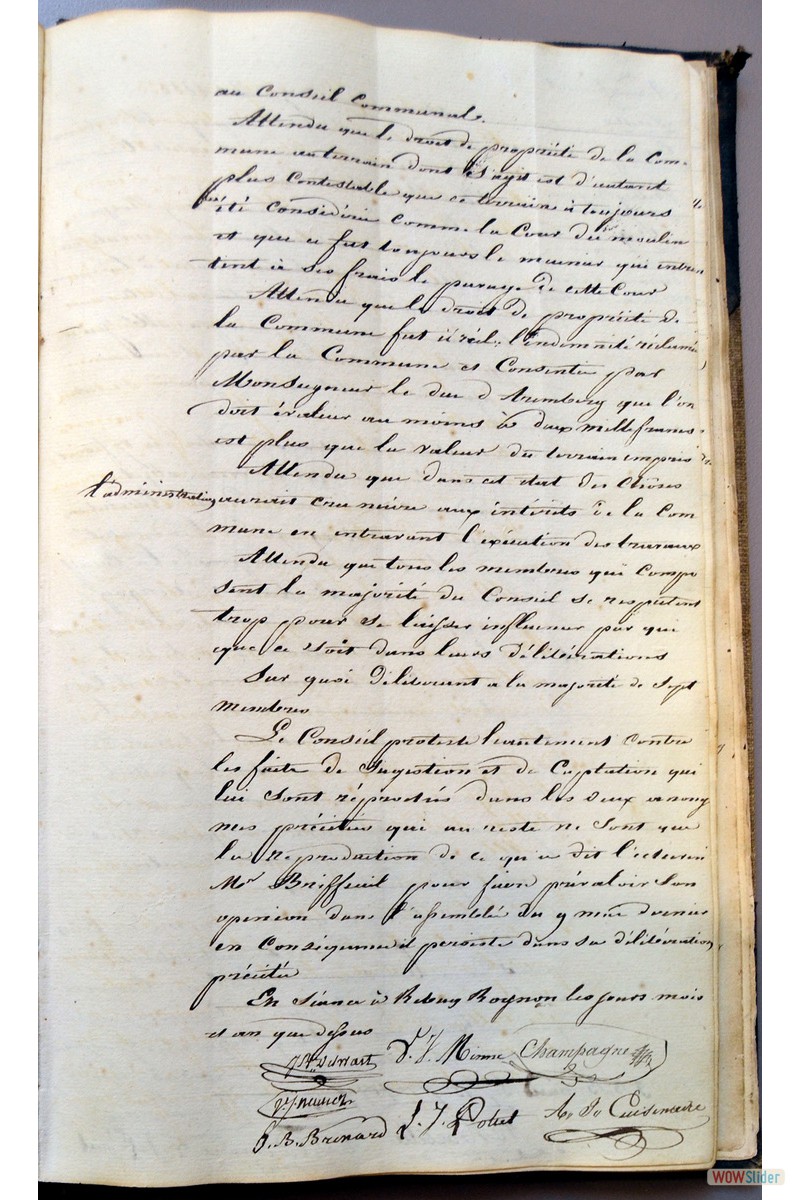 au Conseil Communal.
Attendu que le droit de propriété de la Com-
mune au terrain dont s'agit est d'autant
plus contestable que ce terrain à toujours
été considérée comme la Cour du moulin
et que ce fut toujours le meunier qui entre
tent à ses frais le pavage de cette Cour
Attendu que le droit de propriété de
la Commune fut il réel, l'indemnité réclamée
par la Commune et Consentie par
Monseigneur le duc d'Aremberg que l'on
doit évaluer au moins à deux mille francs
est plus que la valeur du terrain empris
Attendu que dans cet état des choses
l'administration aurait cru nuire aux intérêts de la Com
mune en entravant l'exécution des travaux
Attendu que tous les membres qui compo
sent la majorité du Conseil se respectent
trop pour se laisser influencer par qui
que ce soit dans leurs délibérations
Sur quoi délibérant a la majorité de Sept
membres
Le Conseil proteste hautement contre
les faits de Sugestion et de Captation qui
lui sont réprochés dans les deux anony
mes précitées qui au reste ne sont que
la reproduction de ce qu'a dit l'echevin
Mr Briffeuil pour faire prévaloir son
openion dans l'assemblé du 9 mai dernier
en Conséquence il persiste dans sa délibération
précitée
En Séance à Rebecq Rognon les jours mois
et an que dessus
D. J. Minne Champagne
J. B. Brenard L. J. Pollet A. J. Cuisenaire
WOWSlider